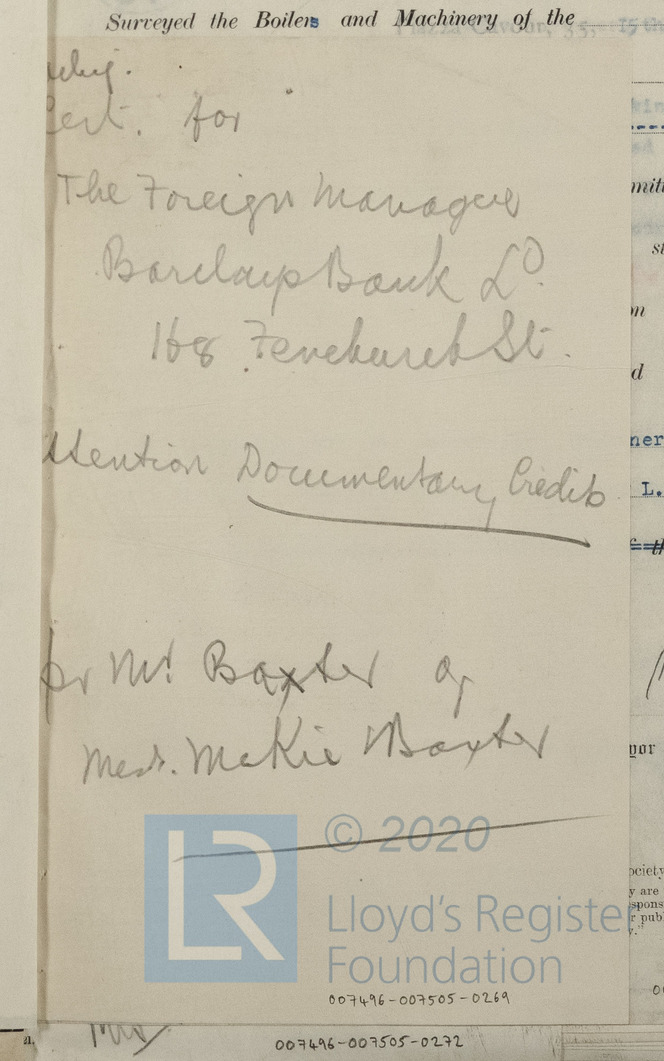 Surveyed the Boilers and Machinery of the
Cert. for
The Foreign Manager
Barclays Bank Ld.
168 Fenchurch St.
Attention Documentary Credits
pr Mr. Baxter of
Messrs. McKie & Baxter
© 2020
LR
Lloyd's Register
Foundation
007496-007505-0269
007496-007505-0272